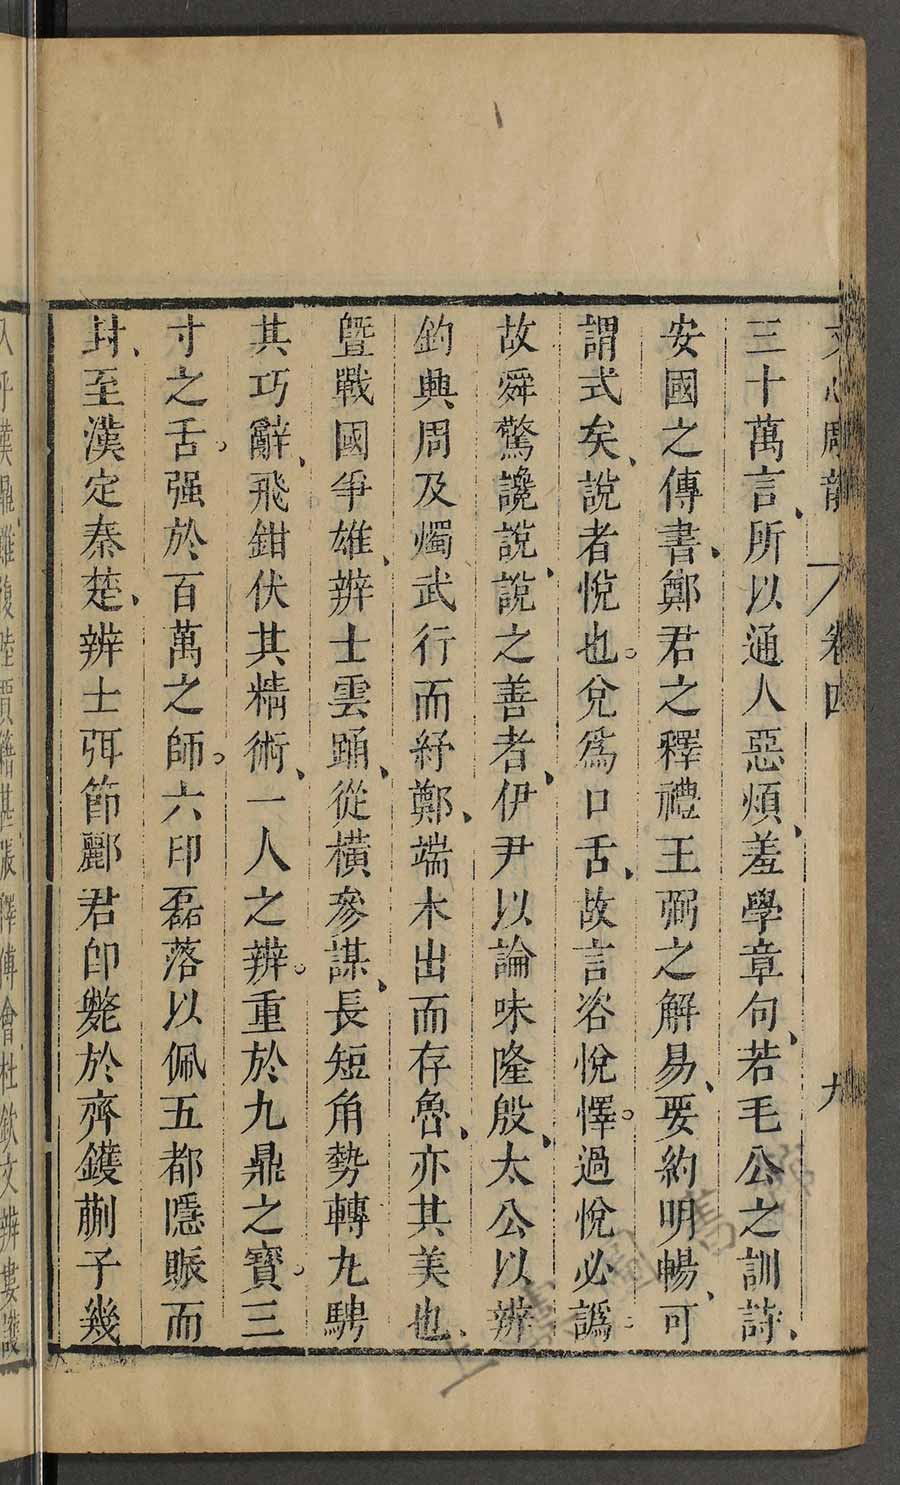 文心雕龍 卷四 九
三十萬言、所以通人惡煩、羞學章句、若毛公之訓詩、
安國之傳書、鄭君之釋禮王弼之解易、要約明暢、可
謂式矣、說者悅也。兌爲口舌、故言咨悅懌。過悅必譌。
故舜驚讒說、說之善者、伊尹以論味隆殷、太公以辨
釣興周及燭武行而紓鄭、端木出而存魯、亦其美也、
曁戰國爭雄、辨士雲踊、從橫參謀、長短角勢轉丸騁
其巧辭、飛鉗伏其精術、一人之辨。重於九鼎之寶。三
寸之舌。强於百萬之師。六印磊落以佩五都隱賑而
封、至漢定秦楚、辨士弭節酈君卽斃於齊鑊蒯子幾
入乎漢鼎、雖復陸賈籍甚、張釋傅會、杜欽文辨婁護